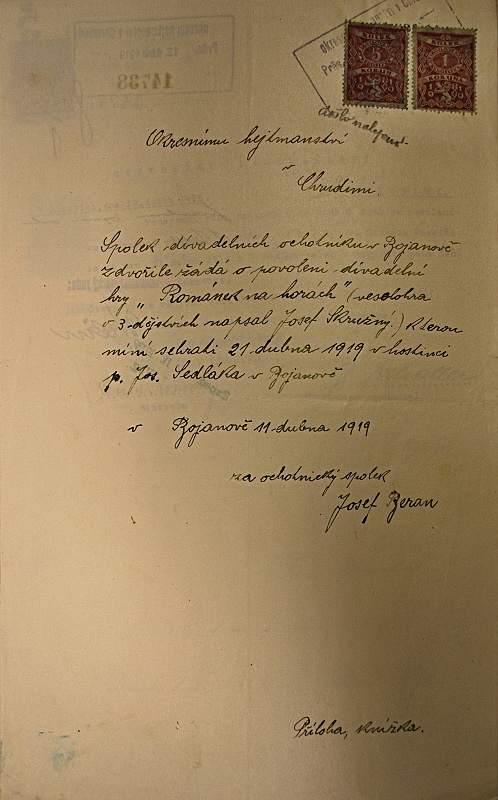 KOLEK
5
KORUN
KOLEK
1
KORUNA
došlo nalepené.
Okresnímu hejtmanství
v
Chrudimi.
Spolek divadelních ochotníku v Bojanově
zdvořile žádá o povolení divadelní
hry „Románek na horách" (veselohra
v 3-dějstvích napsal Josef Skružný.) kterou
míní sehrati 21 dubna 1919 v hostinci
p. Jos. Sedláka v Bojanově
v Bojanově 11 dubna 1919
za ochotnický spolek
Josef Beran
Příloha, knížka.
14738